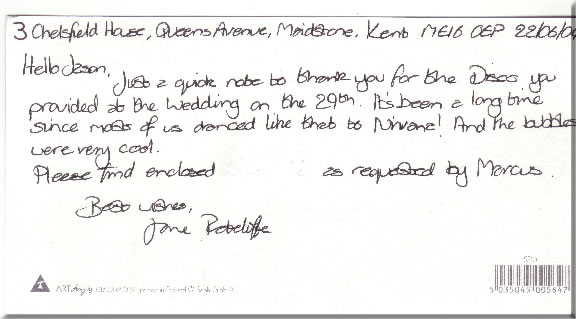 3 Chelsfield House, Queens Avenue, Maidstone, Kent ME16 0EP 22/06/04
Hello Jason,
Just a quick note to thank you for the Disco you
provided at the Wedding on the 29th. It's been a long time
since most of us danced like that to Nirvana! And the bubbles
were very cool.
Please find enclosed as requested by Marcus.
Best wishes,
Jane Ratcliffe
5 035045 005647